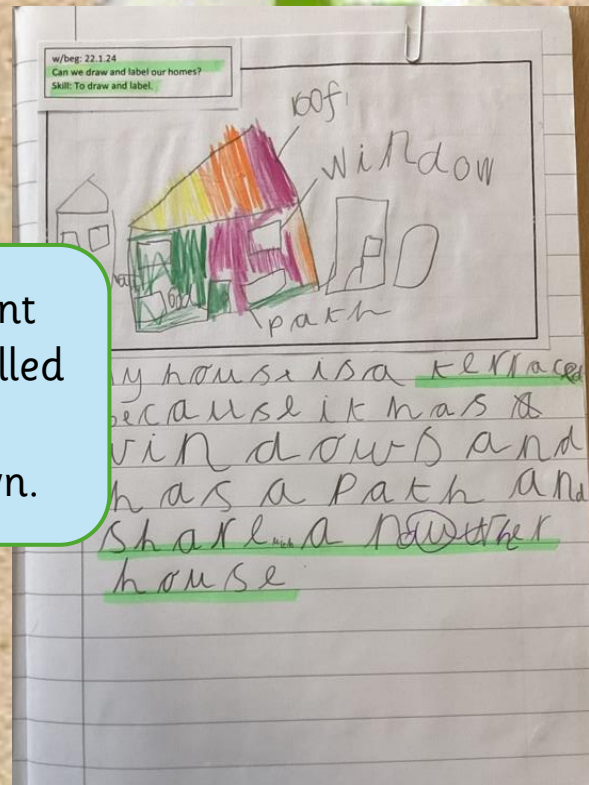 w/beg: 22.1.24
Can we draw and label our homes?
Skill: To draw and label.
roof
window
path
nt
lled
vn.
y house is a terraced
because it has
windows and
has a path and
share with a nawther
house